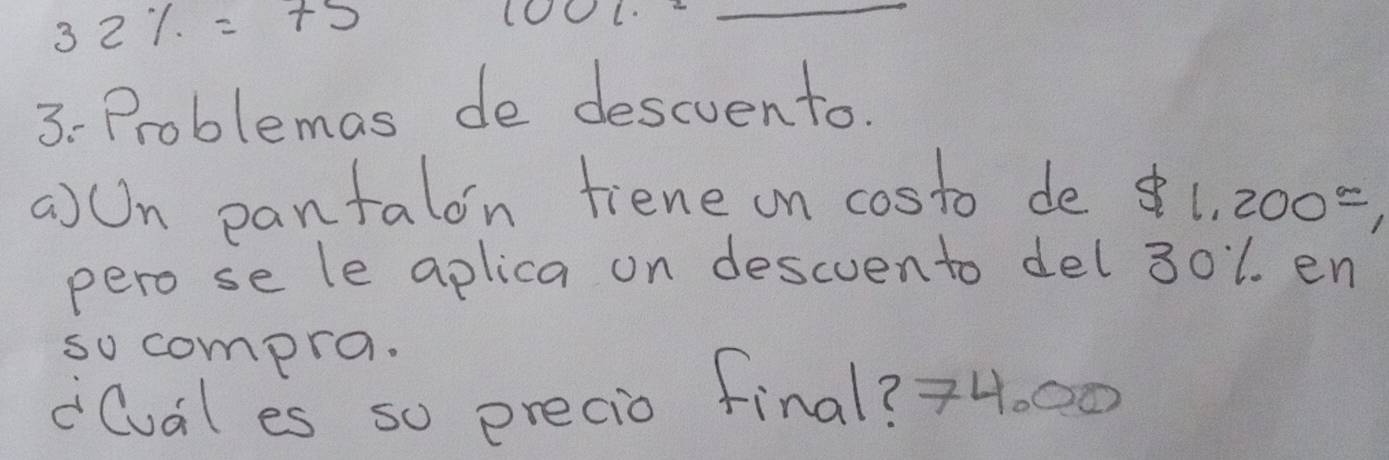 32%. = 75 100%. = ______
3.- Problemas de descuento.
a) Un pantalón tiene un costo de $1,200⁰⁰,
pero se le aplica un descuento del 30%. en
su compra.
¿Cuál es su precio final? 74.00